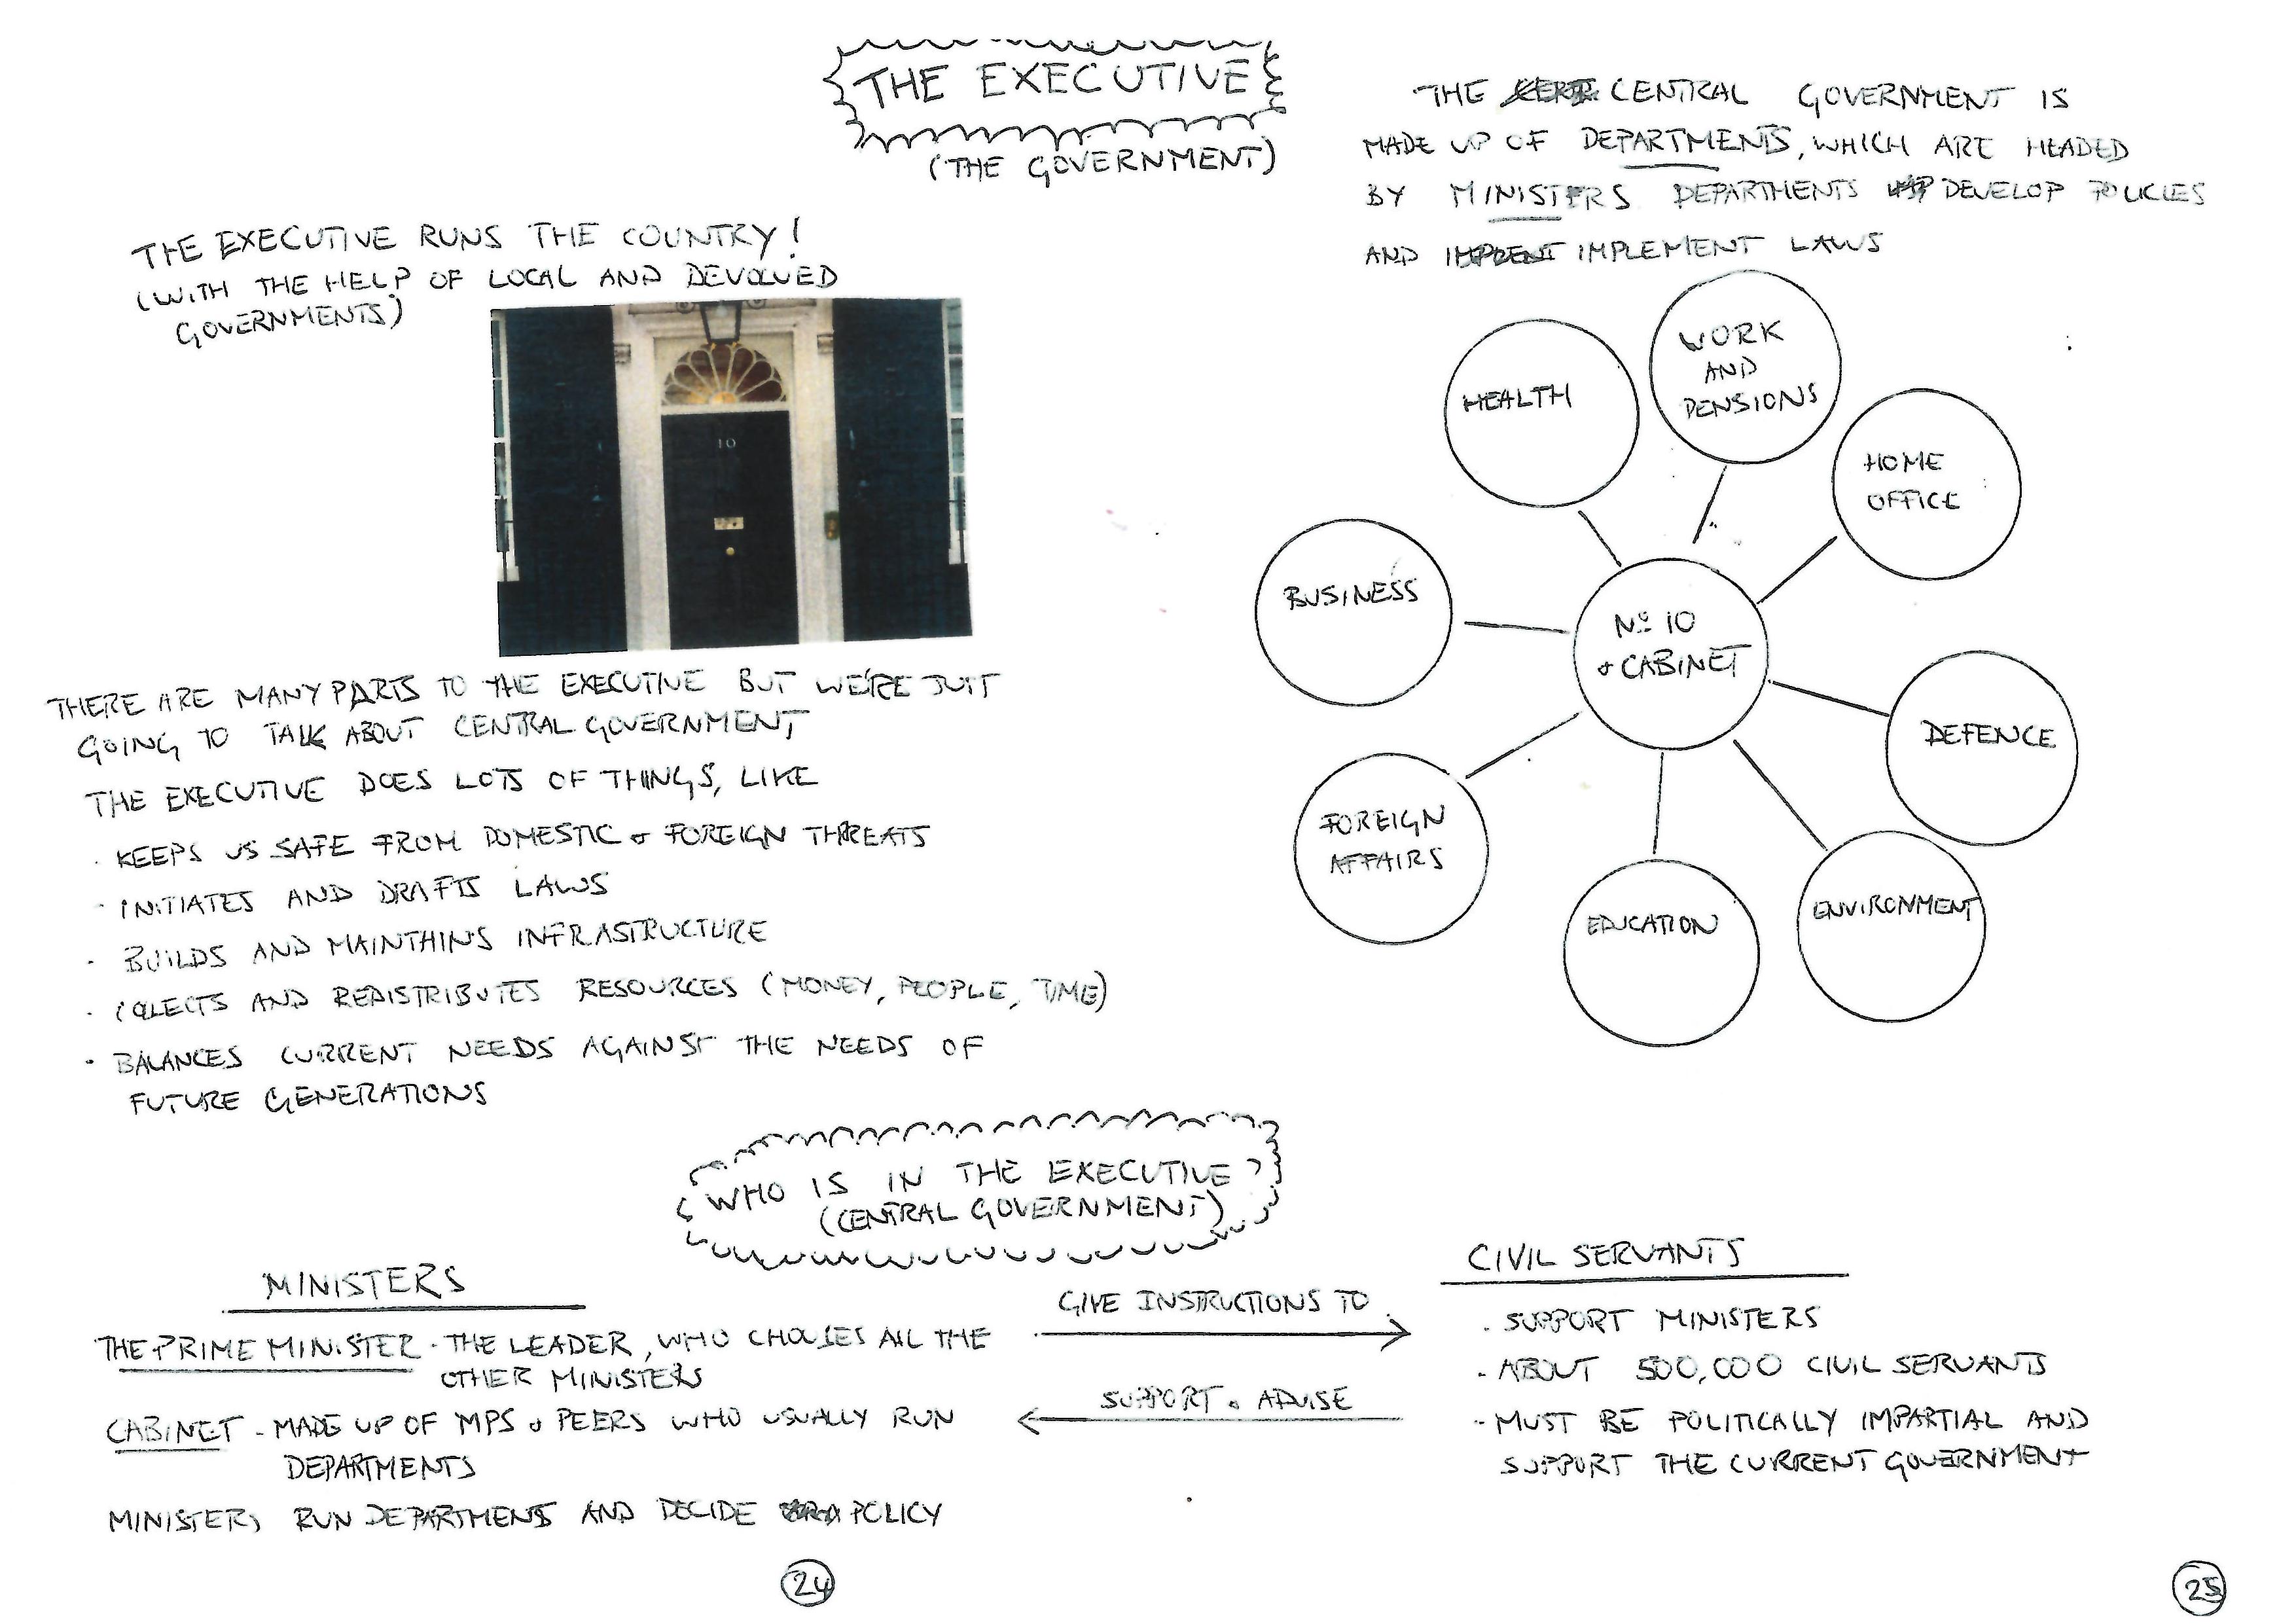 THE EXECUTIVE
(THE GOVERNMENT)
THE EXECUTIVE RUNS THE COUNTRY!
(WITH THE HELP OF LOCAL AND DEVOLVED
GOVERNMENTS)
10
THERE ARE MANY PARTS TO THE EXECUTIVE BUT WE'RE JUST
GOING TO TALK ABOUT CENTRAL GOVERNMENT
THE EXECUTIVE DOES LOTS OF THINGS, LIKE
· KEEPS US SAFE FROM DOMESTIC & FOREIGN THREATS
· INITIATES AND DRAFTS LAWS
· BUILDS AND MAINTAINS INFRASTRUCTURE
· COLLECTS AND REDISTRIBUTES RESOURCES (MONEY, PEOPLE, TIME)
· BALANCES CURRENT NEEDS AGAINST THE NEEDS OF
FUTURE GENERATIONS
THE CENTRAL GOVERNMENT IS
MADE UP OF DEPARTMENTS, WHICH ARE HEADED
BY MINISTERS DEPARTMENTS DEVELOP POLICIES
AND IMPLEMENT LAWS
HEALTH
WORK
AND
PENSIONS
HOME
OFFICE
BUSINESS
Nº 10
& CABINET
DEFENCE
FOREIGN
AFFAIRS
EDUCATION
ENVIRONMENT
WHO IS IN THE EXECUTIVE?
(CENTRAL GOVERNMENT)
MINISTERS
THE PRIME MINISTER - THE LEADER, WHO CHOOSES ALL THE
OTHER MINISTERS
CABINET - MADE UP OF MPS & PEERS WHO USUALLY RUN
DEPARTMENTS
MINISTERS RUN DEPARTMENTS AND DECIDE POLICY
GIVE INSTRUCTIONS TO
SUPPORT & ADVISE
CIVIL SERVANTS
- SUPPORT MINISTERS
- ABOUT 500,000 CIVIL SERVANTS
- MUST BE POLITICALLY IMPARTIAL AND
SUPPORT THE CURRENT GOVERNMENT
24
25